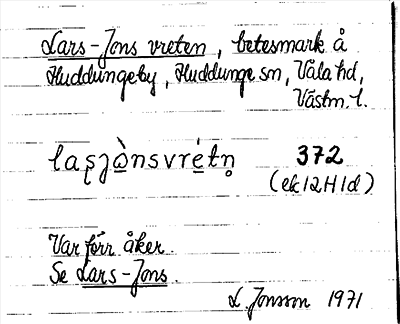 Lars-Jons vreten, betesmark å
Huddungeby, Huddunge sn, Våla hd,
Västm. l.
laʂjò̱nsvré̱tn̥ 372
(ek 12H1d)
Var förr åker.
Se Lars-Jons.
L. Jonsson 1971